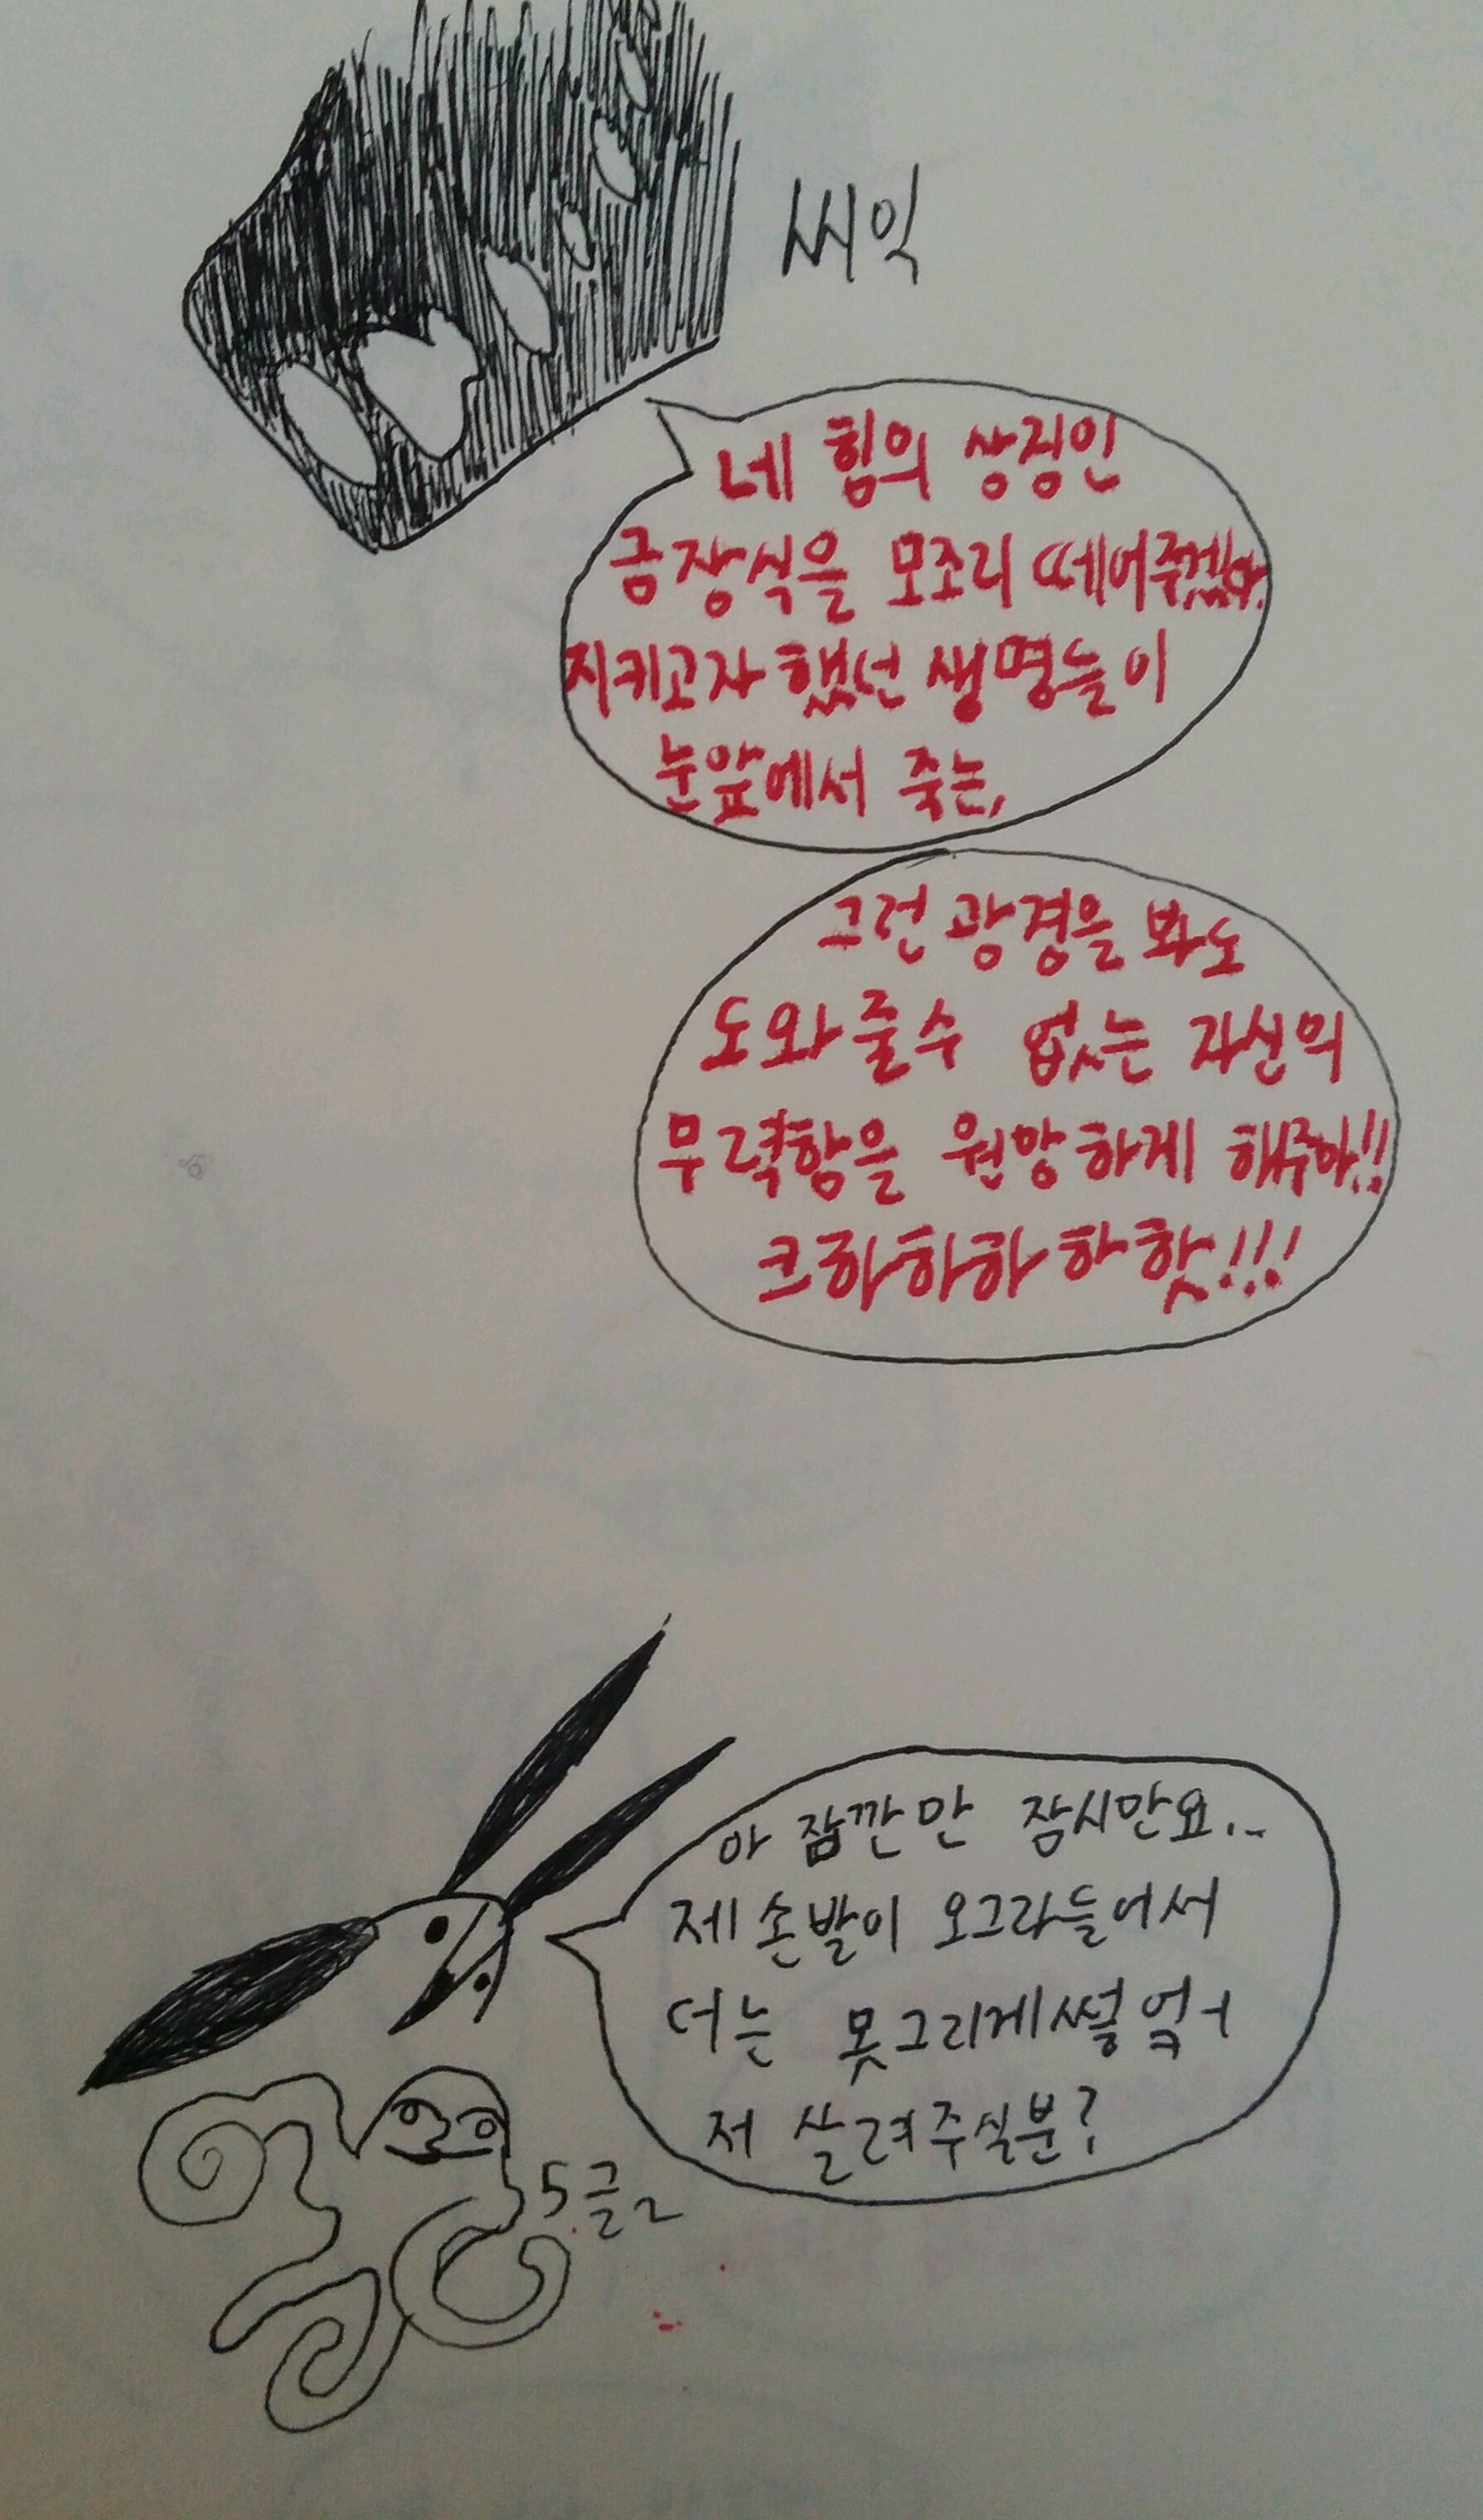 씨익
네 힘의 상징인
금장식을 모조리 떼어주겠다.
지키고자 했던 생명들이
눈앞에서 죽는,
그런 광경을 봐도
도와줄수 없는 자신의
무력함을 원망하게 해주마!!
크하하하하핫!!!
아 잠깐만 잠시만요...
제 손발이 오그라들어서
더는 못그리게씀
저 살려주실분?